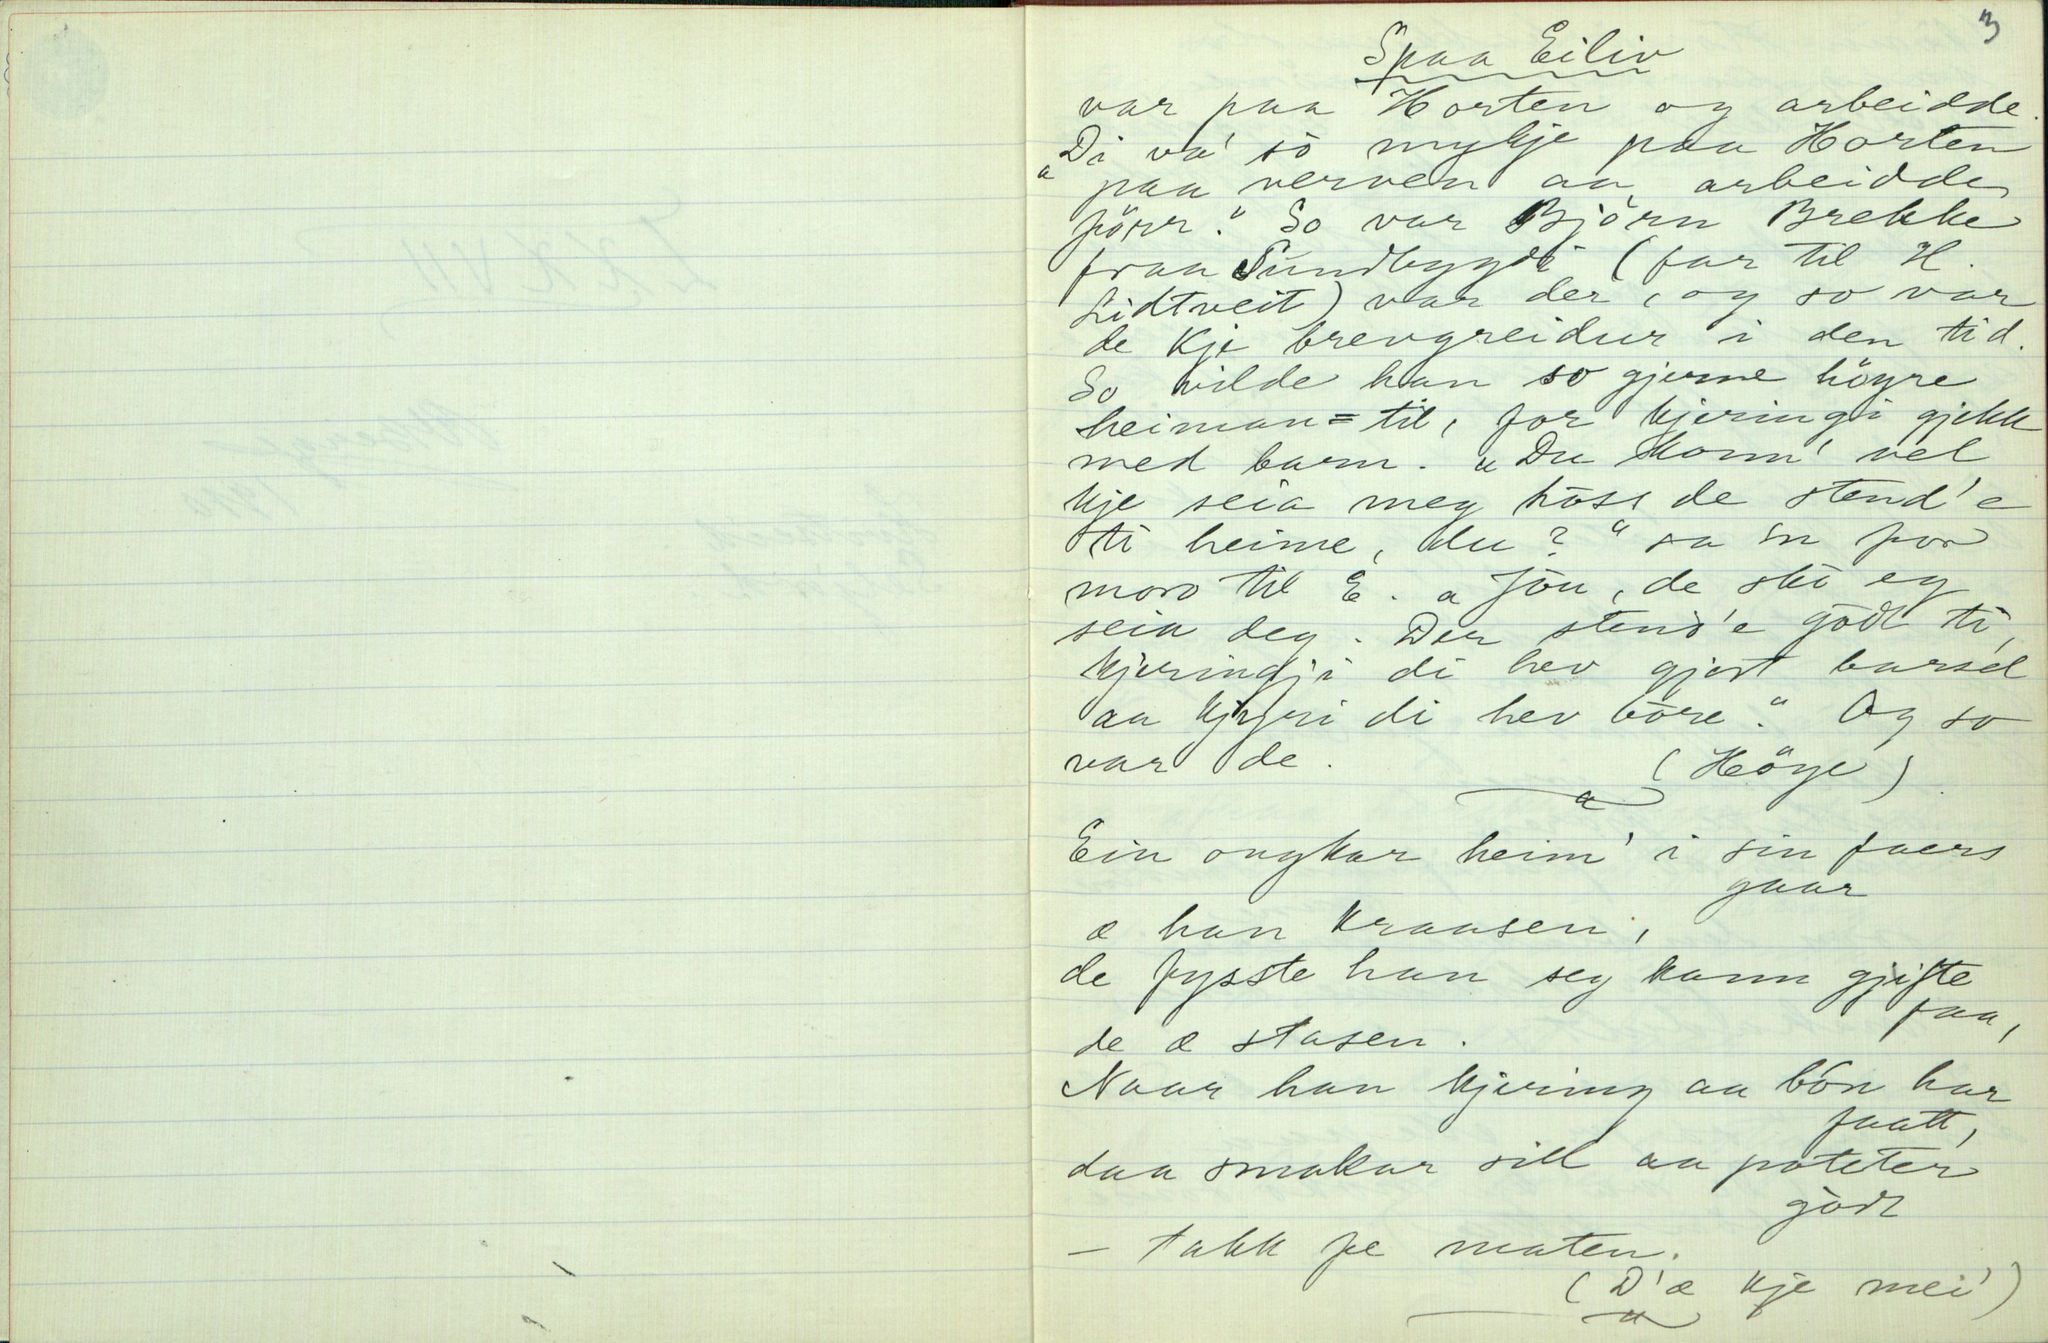 3
Spaa Eiliv
var paa Horten og arbeidde.
"Di va' so mykje paa Horten
paa verven aa arbeidde
förr." So var Björn Brekke
fraa Sundbygdi (far til H.
Lidtveit) var der, og so var
de kje brevgreidur i den tid.
So vilde han so gjerne höyre
heiman=til, for kjeringi gjekk
med barn. "Du konn' vel
kje seia meg hoss de stend'e
ti heime, du?" sa 'n for
moro til E. "Jou, de ski eg
seia deg. Der stend'e godt ti,
kjeringji di hev gjort barsel
aa kjyri di hev bore." Og so
var de. (Höye)
Ein ongkar heim' i sin faers
gaar
æ han kraasen,
de fysste han seg kann gjifte
paa,
de æ stasen.
Naar han kjering aa bon har
faatt,
daa smakar sill aa poteter
godt
– takk fe maten.
(D'æ kje mei')